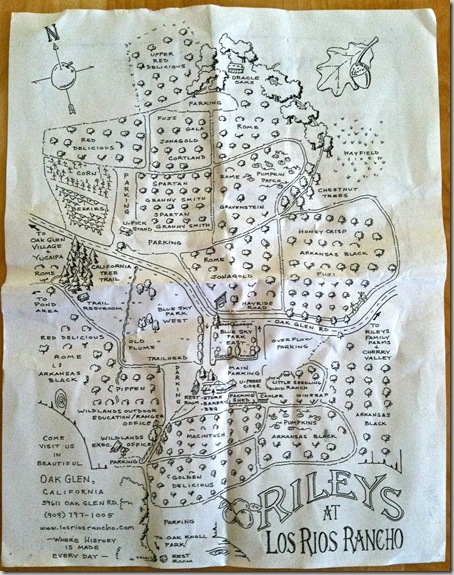 N
UPPER
RED
DELICIOUS
ORACLE
OAKS
PARKING
FUJI
GALA
ROME
RED
DELICIOUS
JONAGOLD
CORTLAND
HAYFIELD
CORN
BERRIES
PARKING
SPARTAN
GRANNY SMITH
SPARTAN
GRANNY SMITH
ROME
PUMPKIN
PATCH
GRAVENSTEIN
CHESTNUT
TREES
U-PICK
STAND
PARKING
TO
OAK GLEN
VILLAGE
+
YUCAIPA
HONEY CRISP
ARKANSAS BLACK
FUJI
ROME
JONAGOLD
CALIFORNIA
TREE
TRAIL
ROME
TO
POND
AREA
TRAIL
RESTROOM
BLUE SKY
PARK
WEST
HAYRIDE
ROAD
OAK GLEN RD
BLUE SKY
PARK
EAST
OVERFLOW
PARKING
TO
RILEYS
FAMILY
FARMS
+
CHERRY
VALLEY
RED DELICIOUS
OLD
FLUME
ROME
ARKANSAS
BLACK
TRAILHEAD
PARKING
MAIN
PARKING
PIPPEN
U-PRESS
CIDER
LITTLE SEEDLING
RANCH
REST
ROOM
STORE
BAKERY
BBQ
PACKING
SHED
COOLER
WINESAP
WILDLANDS OUTDOOR
EDUCATION/RANGER
OFFICE
PUMPKINS
ARKANSAS
BLACK
MACINTOSH
ARKANSAS BLACK
WILDLANDS
EXEC. OFFICE
PARKING
COME
VISIT US
IN
BEAUTIFUL
OAK GLEN,
CALIFORNIA
39611 OAK GLEN RD.
(909) 797-1005
www.losriosrancho.com
—WHERE HISTORY
IS MADE
EVERY DAY—
GOLDEN
DELICIOUS
PARKING
TO OAK KNOLL
PARK
REST
ROOM
RILEYS
AT
LOS RIOS RANCHO